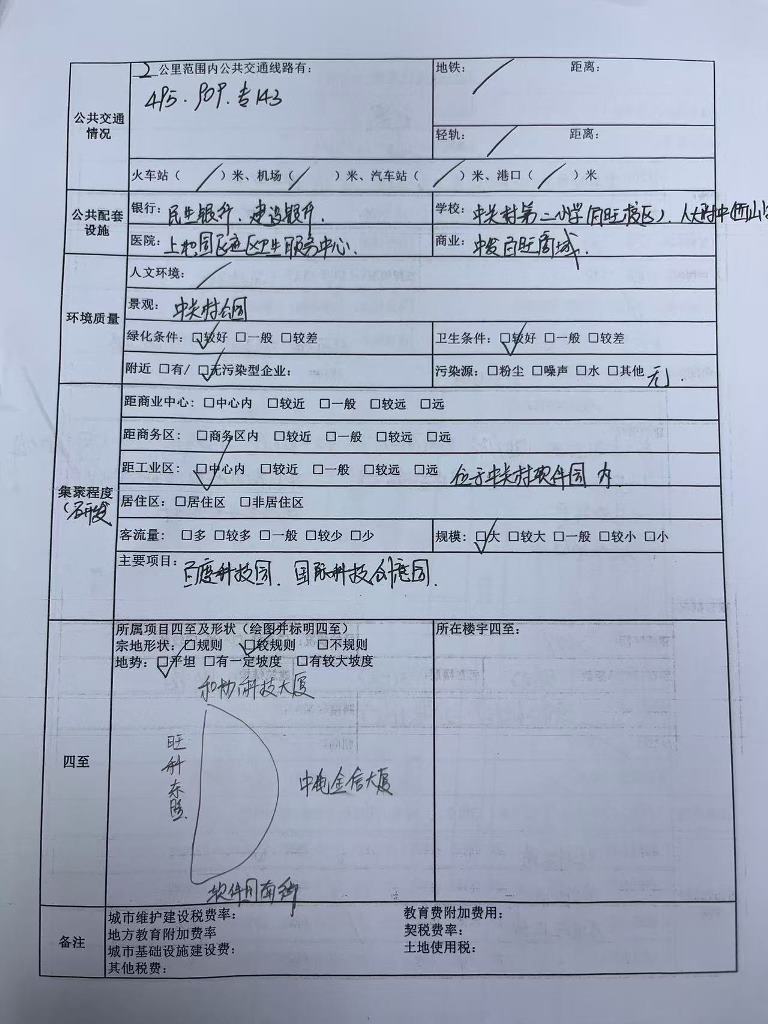 公共交通情况
2 公里范围内公共交通线路有：
495．909．专143
地铁：／ 距离：
轻轨：／ 距离：
火车站（／）米、机场（／）米、汽车站（／）米、港口（／）米
公共配套设施
银行：民生银行．建设银行．
学校：中关村第二小学(百旺校区)．人大附中(西山
医院：上地园区社区卫生服务中心．
商业：中发百旺商城．
环境质量
人文环境：／
景观：中关村公园
绿化条件：☑较好 □一般 □较差
卫生条件：☑较好 □一般 □较差
附近 □有/ ☑无污染型企业：
污染源：□粉尘 □噪声 □水 □其他 无．
集聚程度
(研发
距商业中心：□中心内 □较近 □一般 □较远 □远
距商务区：□商务区内 □较近 □一般 □较远 □远
距工业区：☑中心内 □较近 □一般 □较远 □远 位于中关村软件园内．
居住区：□居住区 □非居住区
客流量：□多 □较多 □一般 □较少 □少
规模：☑大 □较大 □一般 □较小 □小
主要项目：百度科技园．国际科技创意园．
四至
所属项目四至及形状（绘图并标明四至）
宗地形状：□规则 ☑较规则 □不规则
地势：☑平坦 □有一定坡度 □有较大坡度
所在楼宇四至：
和协科技大厦
旺科东路
中电金信大厦
软件园南街
备注
城市维护建设税费率：
教育费附加费用：
地方教育附加费率
契税费率：
城市基础设施建设费：
土地使用税：
其他税费：